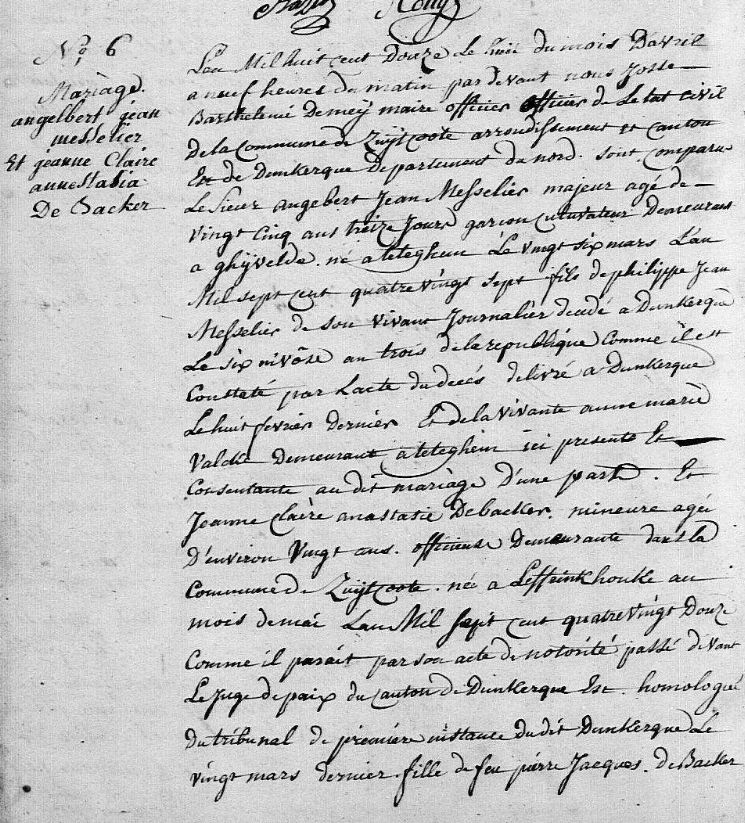 N° 6
Mariage
angelbert jéan
messelier
Et jeanne Claire
annestasia
De Backer
L'an Mil huit cent Douze le huit du mois D'avril
a neuf heures du matin par devant nous Josse
Barthelemé Demey maire officier officier de Letat civil
De la Commune de Zuÿtcoote arrondissement et canton
Est de Dunkerque departement du nord. sont comparu
Le Sieur angebert Jean Messelier majeur agé de
vingt cinq ans treize Jours garcon cultivateur Demeurant
a ghÿvelde. né a teteghem Le vingt six mars L'an
Mil sept cent quatre vingt sept fils de philippe Jean
Messelier de son vivant Journalier decedé a Dunkerque
Le six nivôse an trois de la republique Comme il est
Constaté par Lacte du decés delivré a Dunkerque
Le huit fevrier dernier Et de la vivante anne marie
Valcke Demeurant a teteghem ici presente Et
Consentante au dit mariage D'une part. Et
Jeanne Claire anastasie Debacker. mineure agée
D'environ Vingt ans. Demeurante dans la
Commune de Zuÿtcoote. née a Leffrinkhouke au
mois de mai Lan Mil sept cent quatre vingt Douze
Comme il parait par son acte de notorité passé devant
Le juge de paix du Canton de Dunkerque Est. homologué
Du tribunal de premiere instance du dit Dunkerque Le
vingt mars dernier fille de feu pierre Jacques. de Backer